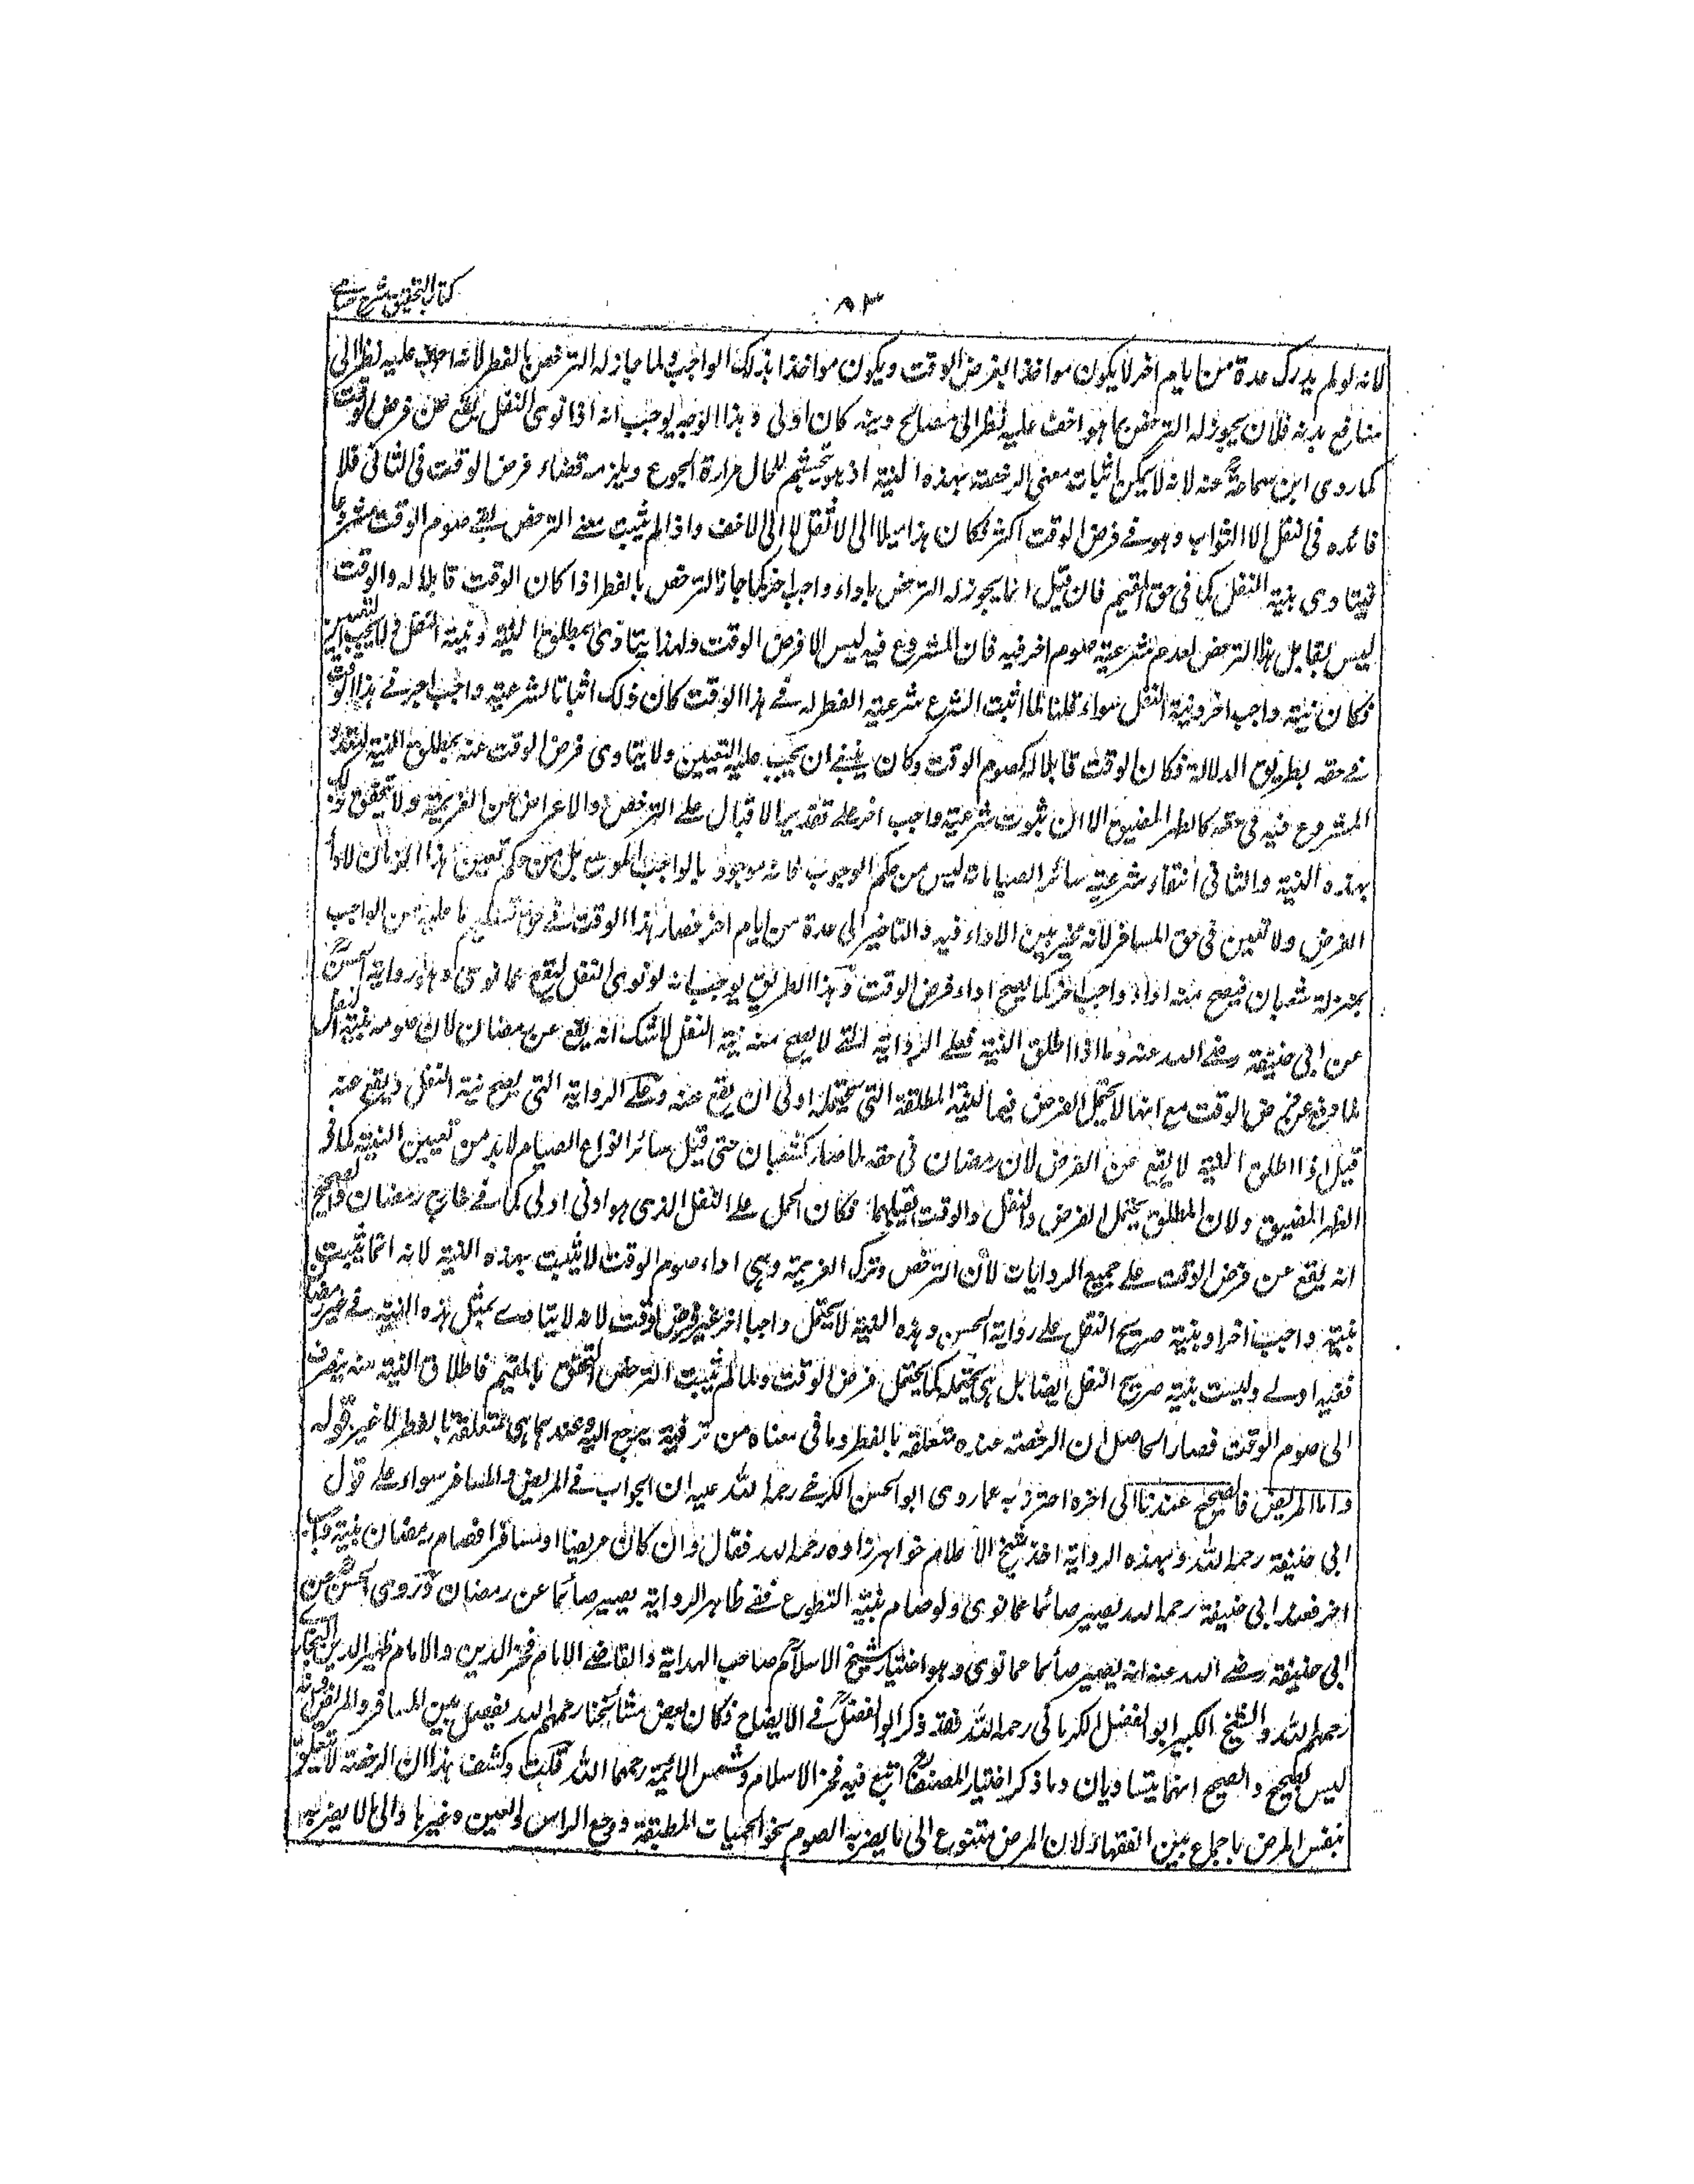 ٨٣
كتاب التحقيق شرح حسامي
لانه لو لم يدرك عدة من ايام اخر لا يكون مواخذا بفرض الوقت ويكون مواخذا بذلك الواجب ولما جاز له الترخص بالفطر لانه اخف عليه نظرا الى
منافع بدنه فلان يجوز له الترخص بما هو اخف عليه نظرا الى مصالح دينه كان اولى وهذا الوجه يوجب انه اذا نوى النفل يقع عن فرض الوقت
كما روى ابن سماعة عنه لانه لا يمكن اثبات معنى الرخصة بهذه النية اذ هو تجشم للحال مرارة الجوع ويلزمه قضاء فرض الوقت في الثاني فلا
فائده في النفل الا الثواب وهو في فرض الوقت اكثر فكان هذا ميلا الى الاثقل لا الى الاخف واذا لم يثبت معنى الترخص بقي صوم الوقت مشروعا
فيتادى بنية النفل كما في حق المقيم فان قيل انما يجوز له الترخص باداء واجب اخر كما جاز الترخص بالفطر اذا كان الوقت قابلا له والوقت
ليس بقابل لهذا الترخص لعدم شرعية صوم اخر فيه فان المشروع فيه ليس الا فرض الوقت ولهذا يتادى بمطلق النية ونية النفل فى
فكان نية واجب اخر ونية النفل سواء قلنا لما اثبت الشرع شرعية الفطر له في هذا الوقت كان ذلك اثباتا لشرعية واجب اخر في هذا الوقت
في حقه بطريق الدلالة فكان الوقت قابلا له كصوم الوقت وكان ينبغي ان يجب عليه التعيين ولا يتادى فرض الوقت عنه بمطلق النية لتعدد
المشروع فيه في حقه كالظهر المضيق الا ان ثبوت شرعية واجب اخر على تقدير الاقبال على الترخص والاعراض عن العزيمة ولا تحقق لذلك
بهذه النية والثاني انتفاء شرعية سائر الصيامات ليس من حكم الوجوب فانه موجود بالواجب الموسع بل من حكم تعين هذا الزمان لاداء
الفرض ولا تعين في حق المسافر لانه مخير بين الاداء فيه والتاخير الى عدة من ايام اخر فصار هذا الوقت في حق تسليم ما عليه من الواجب
بمنزلة شعبان فيصح منه اداء واجب اخر كما يصح اداء فرض الوقت وهذا الطريق يوجب انه لو نوى النفل يقع عما نوى وهو رواية الحسن
عن ابي حنيفة رضي الله عنه واما اذا اطلق النية فعلى الرواية التي لا يصح منه نية النفل لا شك انه يقع عن رمضان لان صومه بنية النفل
لما وقع عن فرض الوقت مع انها لا تحتمل الفرض فبما لنية المطلقة التي تحتمله اولى ان يقع عنه وعلى الرواية التي يصح نية النفل ويقع عنه
قيل اذا اطلق النية لا يقع عن الفرض لان رمضان في حقه لما صار كشعبان حتى قبل سائر انواع الصيام لا بد من تعيين النية كما في
الظهر المضيق ولان المطلق يحتمل الفرض والنفل والوقت يقبلهما فكان الحمل على النفل الذي هو ادنى اولى كما في خارج رمضان والصحيح
انه يقع عن فرض الوقت على جميع الروايات لان الترخص وترك العزيمة وهي اداء صوم الوقت لا يثبت بهذه النية لانه انما يثبت
بنية واجب اخر او بنية صريح النفل على رواية الحسن وهذه النية لا تحتمل واجبا اخر غير فرض الوقت لانه لا يتادى بمثل هذه النية في غير رمضان
ففيه اولى وليست بنية صريح النفل ايضا بل هي تحتمله كما تحتمل فرض الوقت ولما لم يثبت الترخص التحق بالمقيم فاطلاق النية منه ينصرف
الى صوم الوقت فصار الحاصل ان الرخصة عنده متعلقة بالفطر وما في معناه من ترفيه يرجع اليه وعندهما هي متعلقة بالفطر لا غير قوله
واما المريض فالصحيح عندنا الى اخره احترز به عما روى ابو الحسن الكرخي رحمه الله عليه ان الجواب في المريض والمسافر سواء على قول
ابي حنيفة رحمه الله وبهذه الرواية اخذ شيخ الاسلام خواهر زاده رحمه الله فقال وان كان مريضا او مسافرا فصام رمضان بنية واجب
اخر فعند ابي حنيفة رحمه الله يصير صائما عما نوى ولو صام بنية التطوع ففي ظاهر الرواية يصير صائما عن رمضان وروى الحسن عن
ابي حنيفة رضي الله عنه انه يصير صائما عما نوى وهو اختيار شيخ الاسلام صاحب الهداية والقاضي الامام فخر الدين والامام ظهير الدين البخاري
رحمهم الله والشيخ الكبير ابو الفضل الكرماني رحمه الله فقد ذكر ابو الفضل في الايضاح وكان بعض مشائخنا رحمهم الله يفصل بين المسافر والمريض وانه
ليس بصحيح والصحيح انهما يتساويان وما ذكر اختيار المصنف اتبع فيه فخر الاسلام وشمس الائمة رحمهما الله قلت وكشف هذا ان الرخصة لا تتعلق
بنفس المرض باجماع بين الفقهاء لان المرض متنوع الى ما يضر به الصوم نحو الحميات المطبقة ووجع الراس والعين وغيرها والى ما لا يضر به